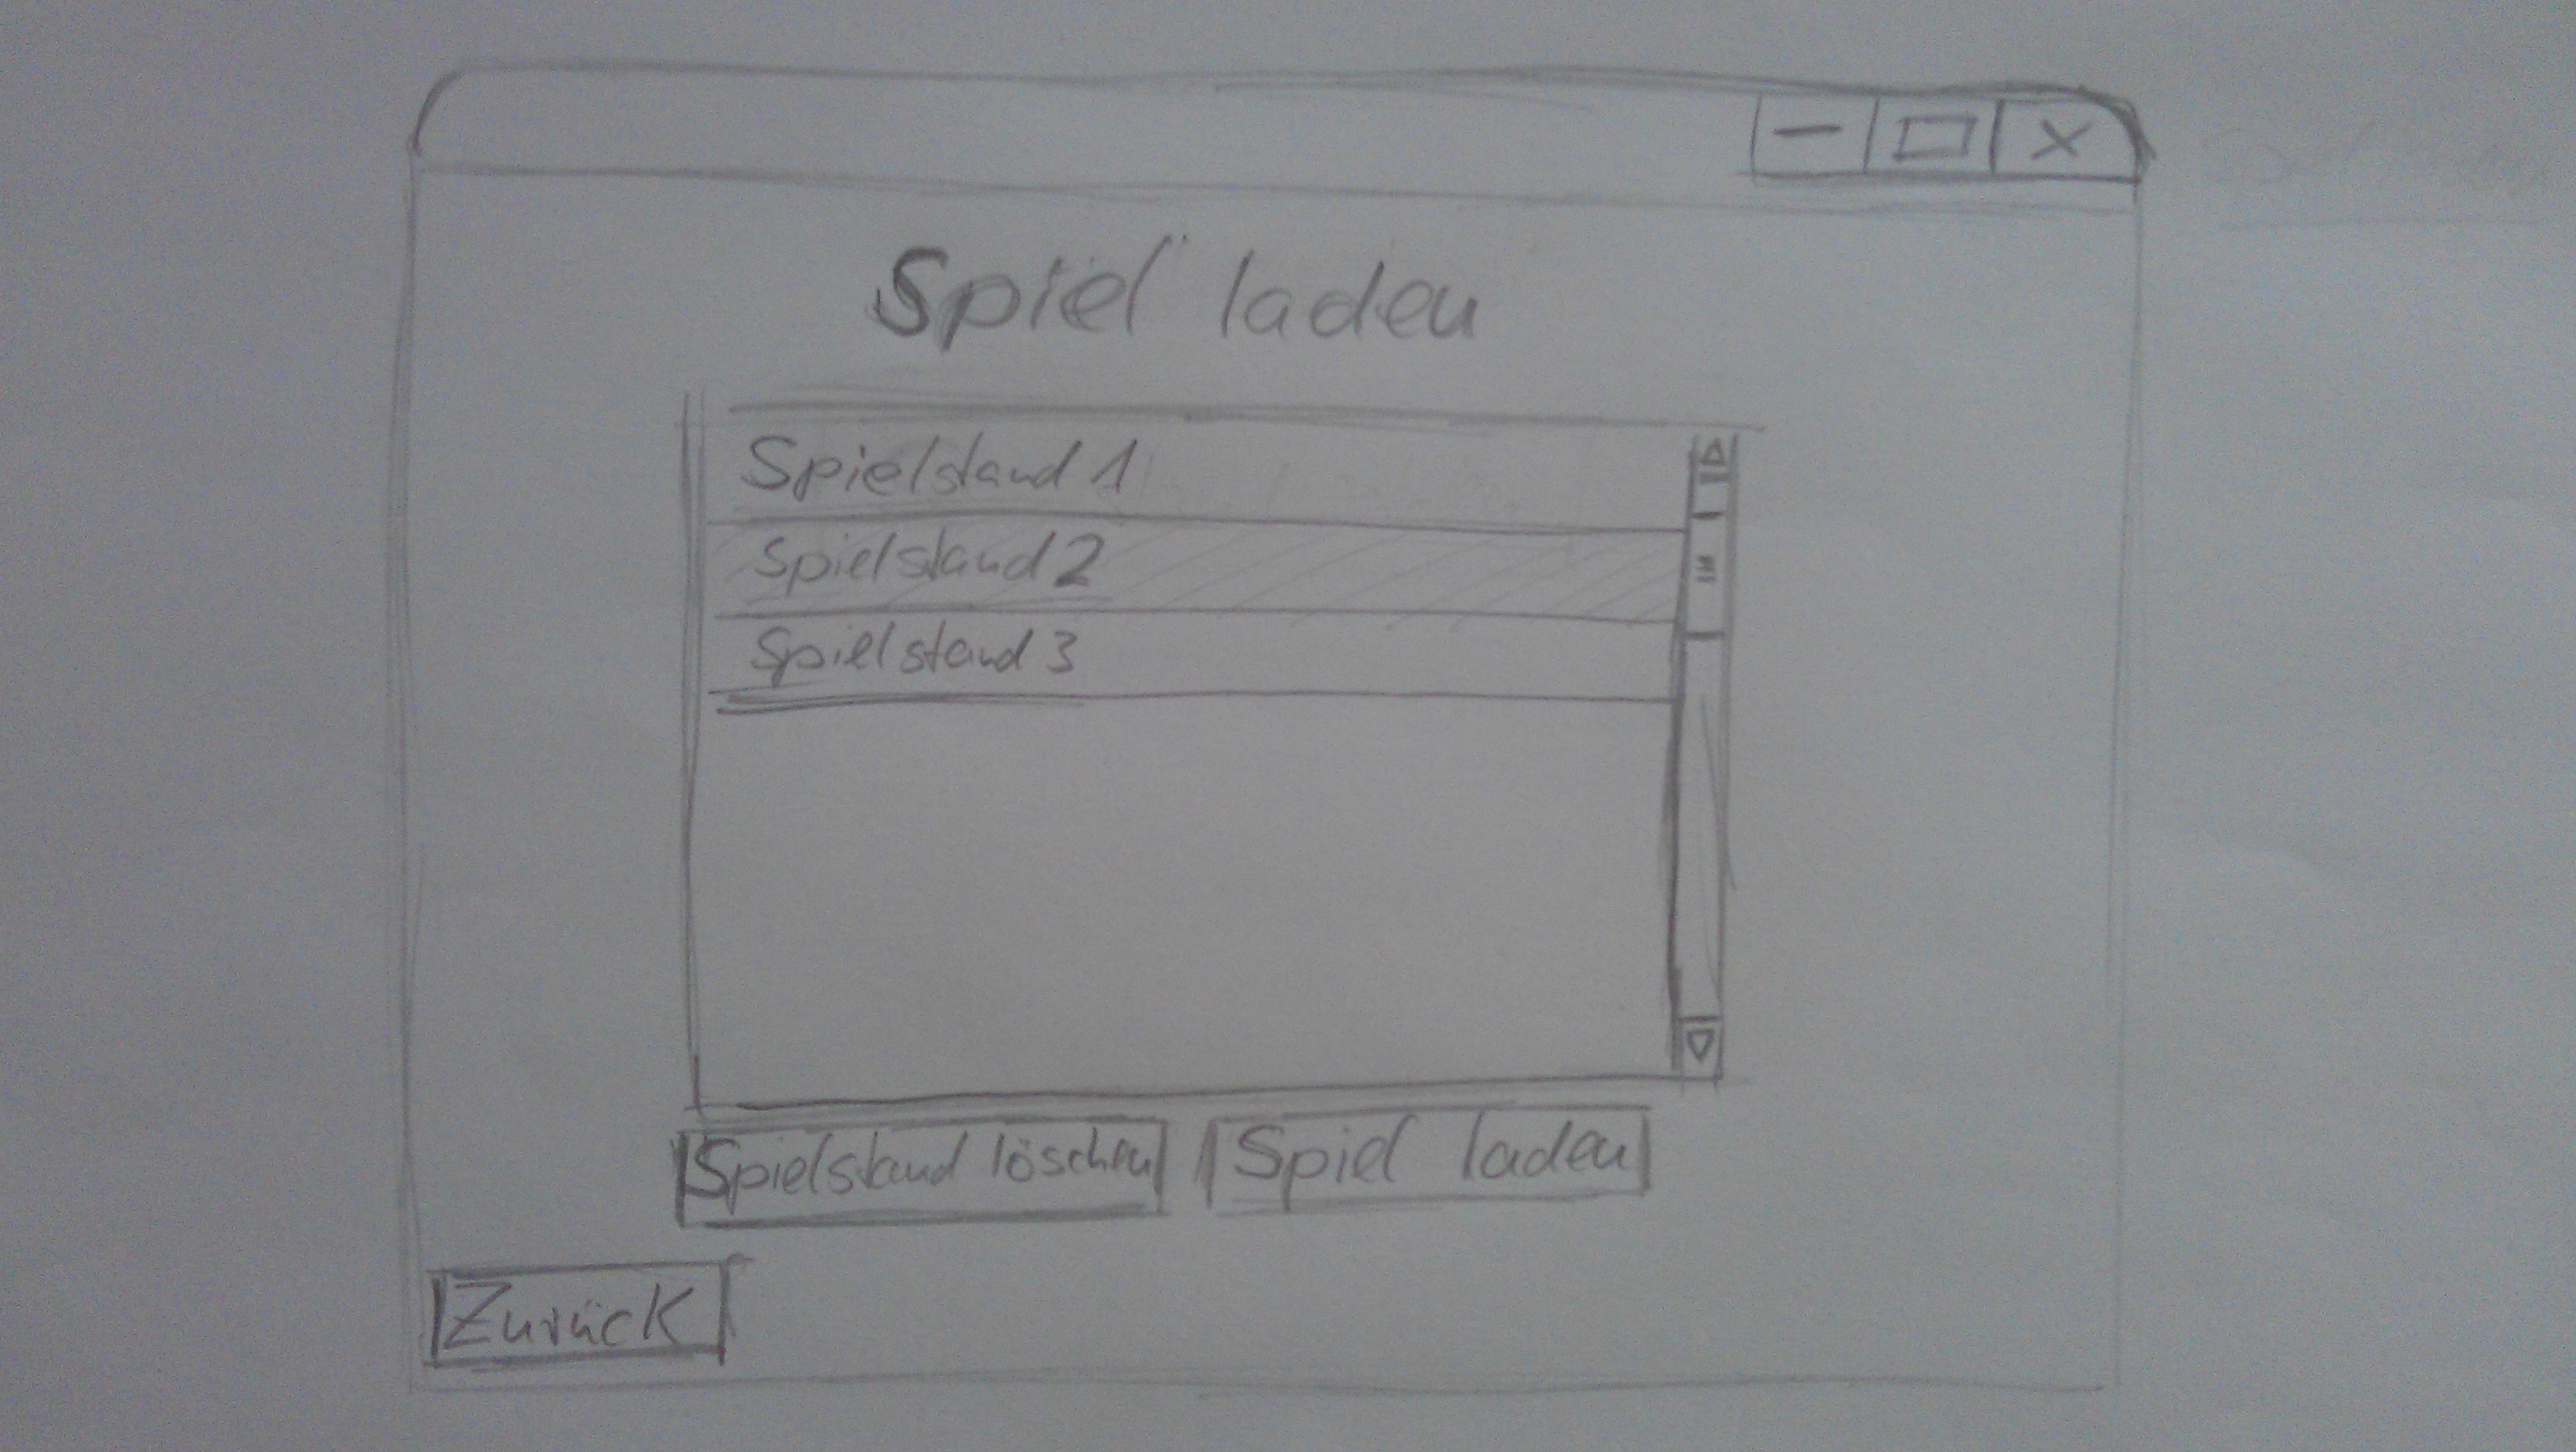 Spiel laden
Spielstand 1
Spielstand 2
Spielstand 3
Spielstand löschen
Spiel laden
Zurück